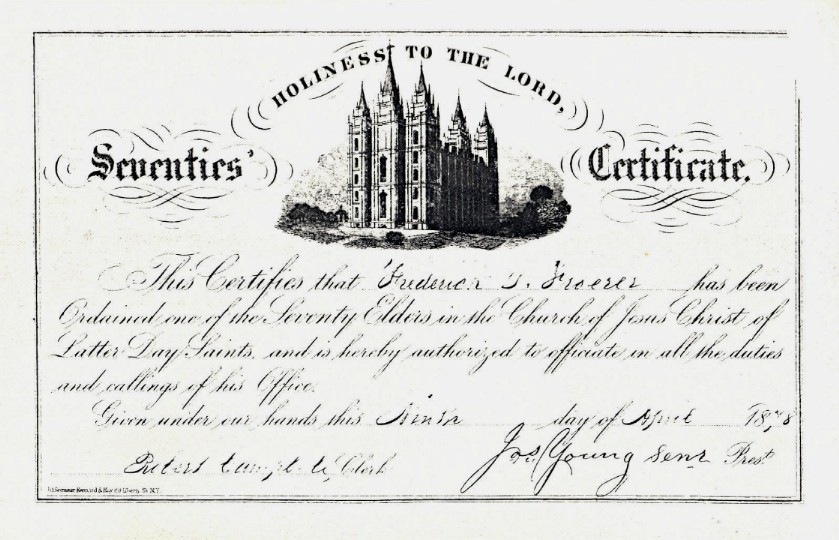 HOLINESS TO THE LORD,
Seventies' Certificate.
This Certifies that Frederick J. Froerer has been
Ordained one of the Seventy Elders in the Church of Jesus Christ of
Latter Day Saints, and is hereby authorized to officiate in all the duties
and callings of his Office.
Given under our hands this Ninth day of April 1878
Robert Campbell Clerk Jos. Young Senr Prest